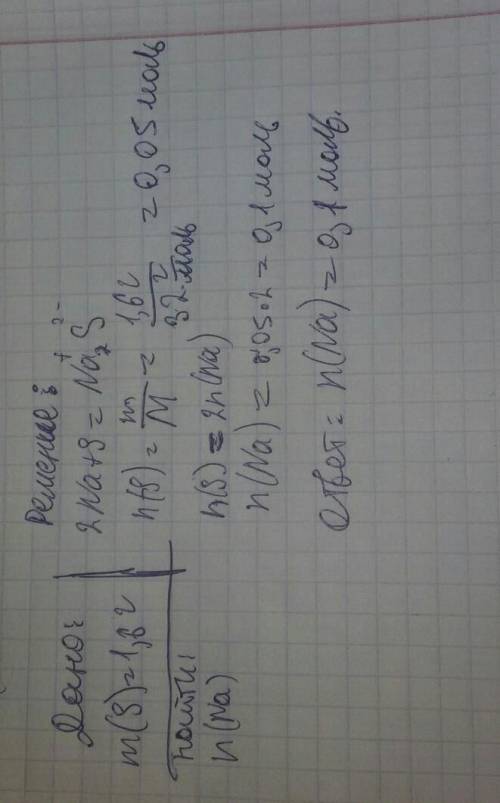 Дано:
m(S)=1,6 г
Найти:
n(Na)
Решение:
2Na+S=Na₂⁺S²⁻
n(S)=m/M=1,6 г/32 г/моль=0,05 моль
n(S)=2n(Na)
n(Na)=0,05·2=0,1 моль
Ответ: n(Na)=0,1 моль.